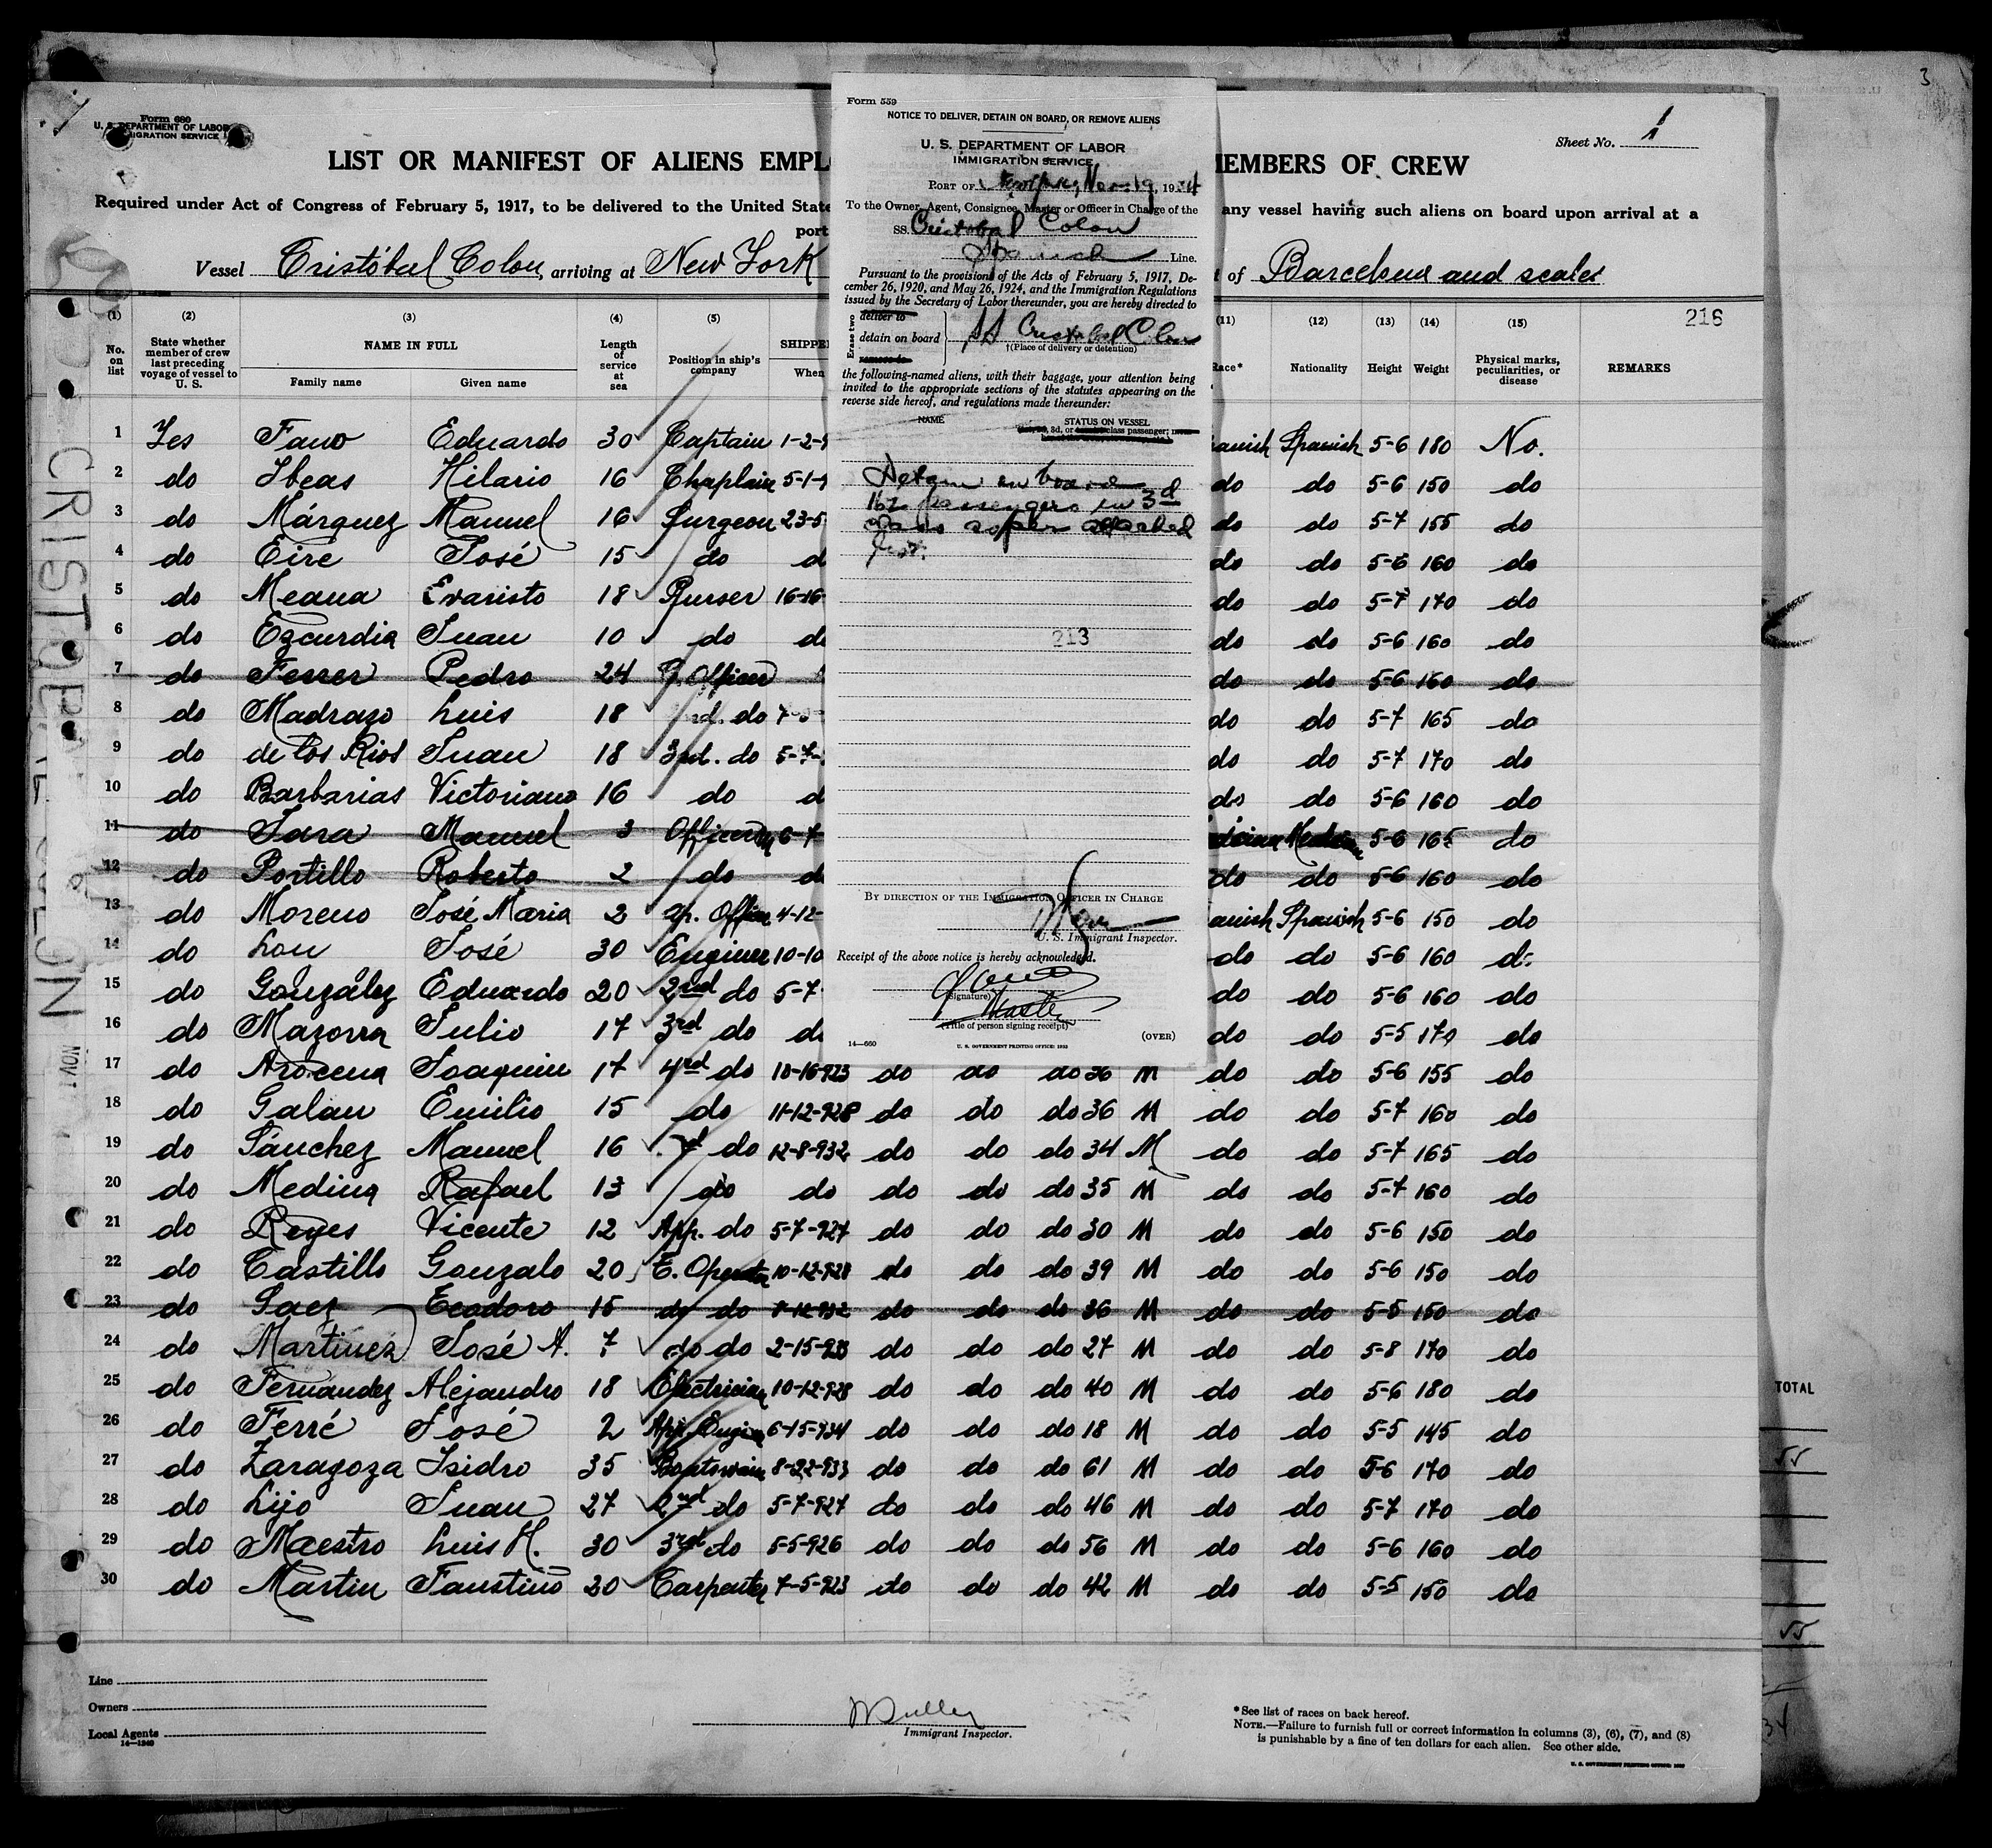 3
Form 680
U. S. DEPARTMENT OF LABOR
IMMIGRATION SERVICE
Sheet No. 1
LIST OR MANIFEST OF ALIENS EMPL
EMBERS OF CREW
Required under Act of Congress of February 5, 1917, to be delivered to the United State
any vessel having such aliens on board upon arrival at a
port
Vessel Cristóbal Colon, arriving at New York
of Barcelona and scales
216
(1) (2) (3) (4) (5) (11) (12) (13) (14) (15)
No. on list
State whether member of crew last preceding voyage of vessel to U. S.
NAME IN FULL
Family name Given name
Length of service at sea
Position in ship's company
SHIPPE
When
Race*
Nationality
Height
Weight
Physical marks, peculiarities, or disease
REMARKS
1 Yes Fano Eduardo 30 Captain 1-2- anish Spanish 5-6 180 No.
2 do Ibeas Hilario 16 Chaplain 5-1- do do 5-6 150 do
3 do Márquez Manuel 16 Surgeon 23-5 do do 5-7 155 do
4 do Eire José 15 do d do do 5-6 160 do
5 do Meana Evaristo 18 Purser 16-16- do do 5-7 170 do
6 do Ezcurdia Juan 10 do do do do 5-6 160 do
7 do Ferrer Pedro 24 Officer do do 5-6 160 do
8 do Madrazo Luis 18 do do do 5-7 165 do
9 do de los Rios Juan 18 3rd. do 5-7- do do 5-7 170 do
10 do Barbarias Victoriano 16 do d do do 5-6 160 do
11 do Jara Manuel 3 Officer 6-7 5-6 165 do
12 do Portillo Roberto 2 do d do do 5-6 160 do
13 do Moreno José Maria 2 Officer 4-12- anish Spanish 5-6 150 do
14 do Lou José 30 Engineer 10-10 do do 5-6 160 do
15 do González Eduardo 20 2nd do 5-7 do do 5-6 160 do
16 do Mazorra Julio 17 3rd do d do do 5-5 170 do
17 do Arocena Joaquin 17 4rd do 10-16-923 do do do 36 M do do 5-6 155 do
18 do Galan Emilio 15 do 11-12-928 do do do 36 M do do 5-7 160 do
19 do Sánchez Manuel 16 do 12-8-932 do do do 34 M do do 5-7 165 do
20 do Medina Rafael 13 do do do do do 35 M do do 5-7 160 do
21 do Reyes Vicente 12 App. do 5-7-927 do do do 30 M do do 5-6 150 do
22 do Castillo Gonzalo 20 E. Operator 10-12-928 do do do 39 M do do 5-6 150 do
23 do Saez Teodoro 15 do do do do do 36 M do do 5-5 150 do
24 do Martinez José A. 7 do do 2-15-933 do do do 27 M do do 5-8 170 do
25 do Fernandez Alejandro 18 Electrician 10-12-928 do do do 40 M do do 5-6 180 do
26 do Ferré José 2 App. 6-15-934 do do do 18 M do do 5-5 145 do
27 do Zaragoza Isidro 35 Boatswain 8-22-933 do do do 61 M do do 5-6 170 do
28 do Lijo Juan 27 2nd do 5-7-927 do do do 46 M do do 5-7 170 do
29 do Maestro Luis M. 30 3rd do 5-5-926 do do do 56 M do do 5-6 160 do
30 do Martin Faustino 20 Carpenter 7-5-923 do do do 42 M do do 5-5 150 do
Form 559
NOTICE TO DELIVER, DETAIN ON BOARD, OR REMOVE ALIENS
U. S. DEPARTMENT OF LABOR
IMMIGRATION SERVICE
PORT OF New York, Nov. 19, 1934
To the Owner, Agent, Consignee, Master or Officer in Charge of the
SS. Cristobal Colon
Spanish Line.
Pursuant to the provisions of the Acts of February 5, 1917, De-
cember 26, 1920, and May 26, 1924, and the Immigration Regulations
issued by the Secretary of Labor thereunder, you are hereby directed to
Erase two
deliver to
detain on board
remove to
SS Cristobal Colon
†(Place of delivery or detention)
the following-named aliens, with their baggage, your attention being
invited to the appropriate sections of the statutes appearing on the
reverse side hereof, and regulations made thereunder:
NAME STATUS ON VESSEL
3d, or class passenger;
Detain on board
162 passengers in 3d
class as per attached
list.
213
BY DIRECTION OF THE IMMIGRATION OFFICER IN CHARGE
U. S. Immigrant Inspector.
Receipt of the above notice is hereby acknowledged.
(Signature)
Master
(Title of person signing receipt)
(OVER)
14—660
U. S. GOVERNMENT PRINTING OFFICE: 1933
CRISTOBAL COLON
NOV 1
TOTAL
55
55
34
Line
Owners
Local Agents
14—1240
Immigrant Inspector.
*See list of races on back hereof.
NOTE.—Failure to furnish full or correct information in columns (3), (6), (7), and (8)
is punishable by a fine of ten dollars for each alien. See other side.